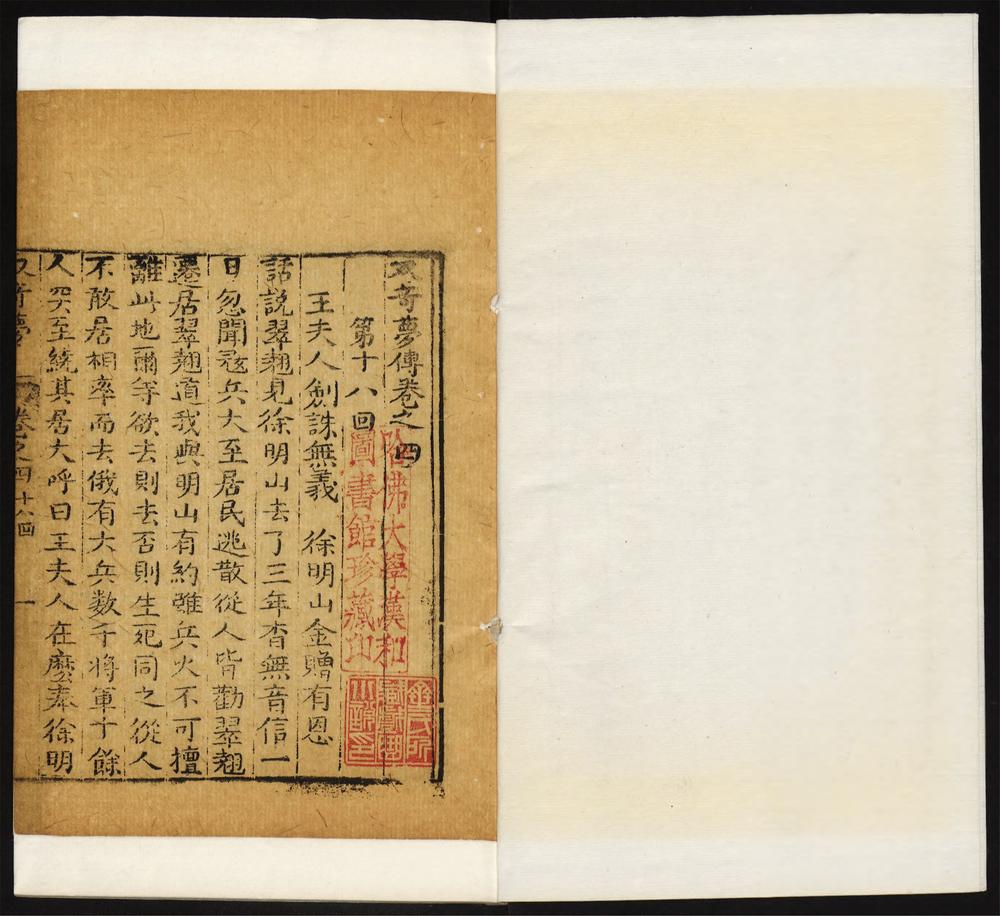 双奇夢傳卷之四
第十八回
王夫人劍誅無義　徐明山金贈有恩
話說翠翹見徐明山去了三年杳無音信一
日忽聞㓂兵大至居民逃散從人皆勸翠翹
遷居翠翹道我與明山有約雖兵火不可擅
離此地爾等欲去則去否則生死同之從人
不敢居相率而去俄有大兵数千將軍十餘
人突至繞其居大呼曰王夫人在麽奉徐明
双奇夢　卷之四　十八回　一
哈佛大學漢和
圖書館珍藏印